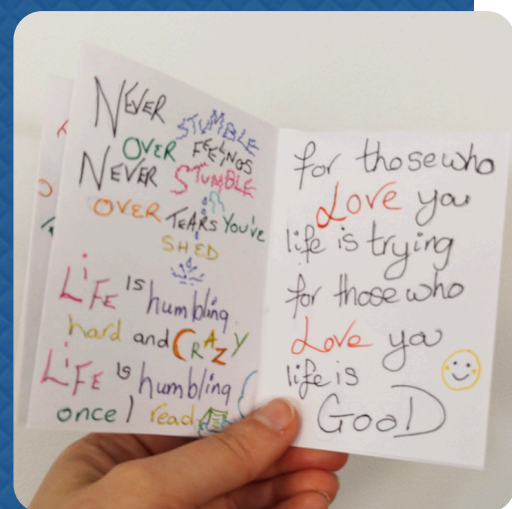 NEVER STUMBLE
OVER FEELINGS
NEVER STUMBLE
OVER TEARS YOU'VE
SHED
LiFE IS humbling
hard and CRAZY
LiFE IS humbling
once I read
for those who
Love you
life is trying
for those who
Love you
life is
GOOD